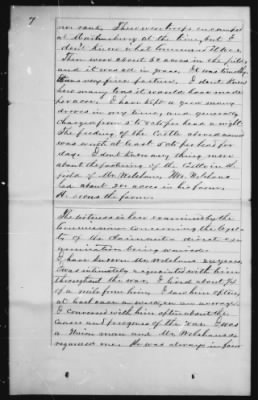 7
nor sank. There were troops encamped
at Martinsburg at the time, but I
don't know what command it was.
There were about 50 acres in the field,
and it was all in grass. It was timothy.
It was very fine pasture. I don't know
how many tons it would have made
per acre. I have kept a good many
droves in my time, and generally
charged from 5 to 8 cts per head a night.
The feeding of the Cattle above named
was worth at least 5 cts per head per
day. I don't know any thing more
about the pasturing of the Cattle in the
field of Mr. Welshans. Mr. Welshans
had about 200 acres in his farm.
He owns the farm.
The witness is here examined by the
Commissioner concerning the loyalty
of the Claimant, direct examination
being waived.
I have known Mr. Welshans 20 years,
I was intimately acquainted with him
throughout the war. I lived about 3/4
of a mile from him. I saw him often,
at least once a week, on an average.
I conversed with him often about the
causes and progress of the war. I was
a Union man and Mr. Welshans so
regarded me. He was always in favor